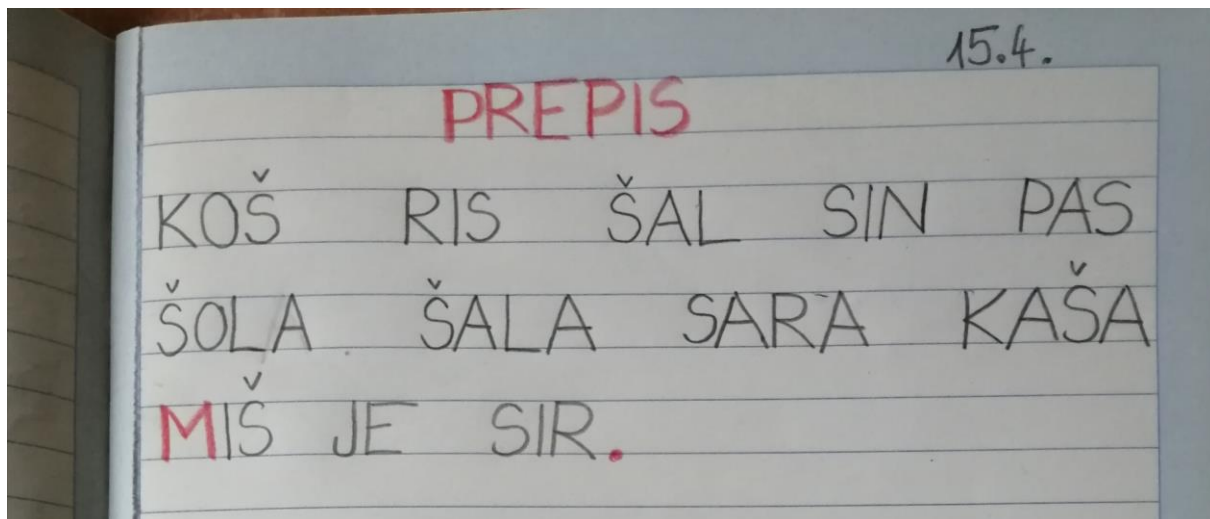 15.4.
PREPIS
KOŠ RIS ŠAL SIN PAS
ŠOLA ŠALA SARA KAŠA
MIŠ JE SIR.